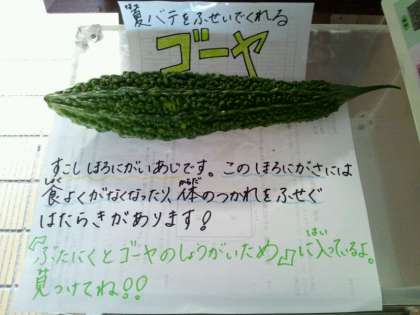 夏バテをふせいでくれる
ゴーヤ
すこしほろにがいあじです。このほろにがさには
食よくがなくなったり、体のつかれをふせぐ
はたらきがあります!
『ぶたにくとゴーヤのしょうがいため』に入っているよ。
見つけてね!!